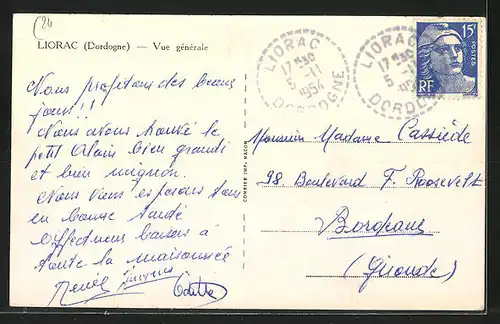 (24
LIORAC (Dordogne) — Vue générale
Nous profitons des beaux
jours!!!
Nous avons trouvé le
petit Alain bien grandi
et bien mignon.
Nous vous espérons tous
en bonne santé
Affectueux baisers à
toute la maisonnée
Renée
Odette
COMBIER IMP. MACON
LIORAC
17H30
5-11
1954
DORDOGNE
LIORAC
17H30
DORDO
15F
POSTES
RF
Monsieur Madame Cassiède
98. Boulevard F. Roosevelt
Bordeaux
(Gironde)